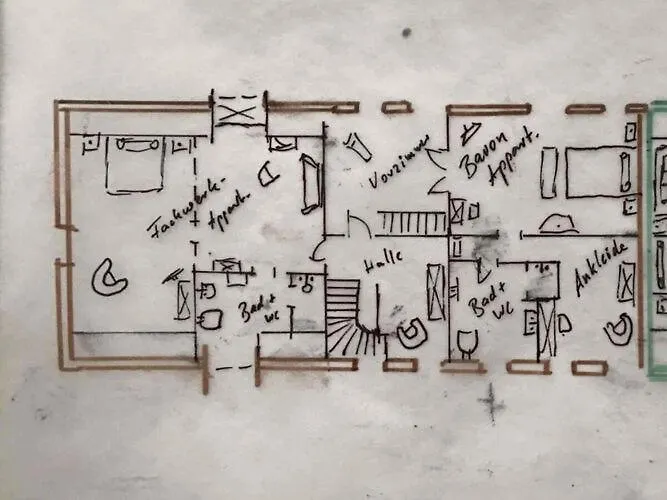 Fachwerk-
Appart.
Vorzimmer
Baron
Appart.
Halle
Bad +
WC
Bad +
WC
Ankleide